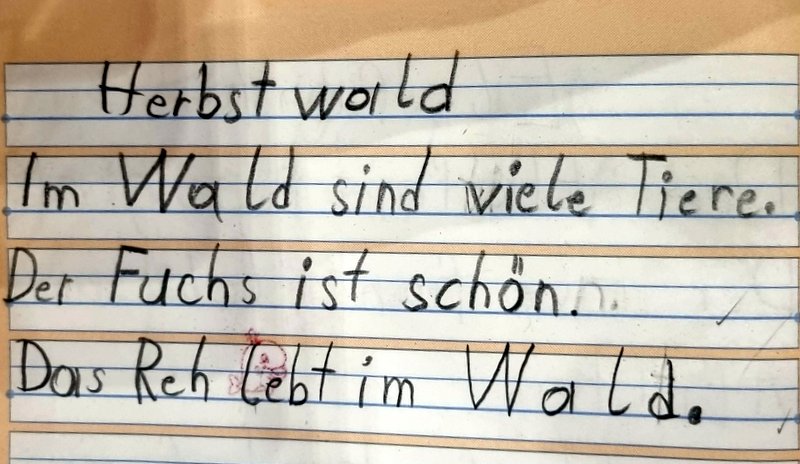 Herbstwald
Im Wald sind viele Tiere.
Der Fuchs ist schön.
Das Reh lebt im Wald.